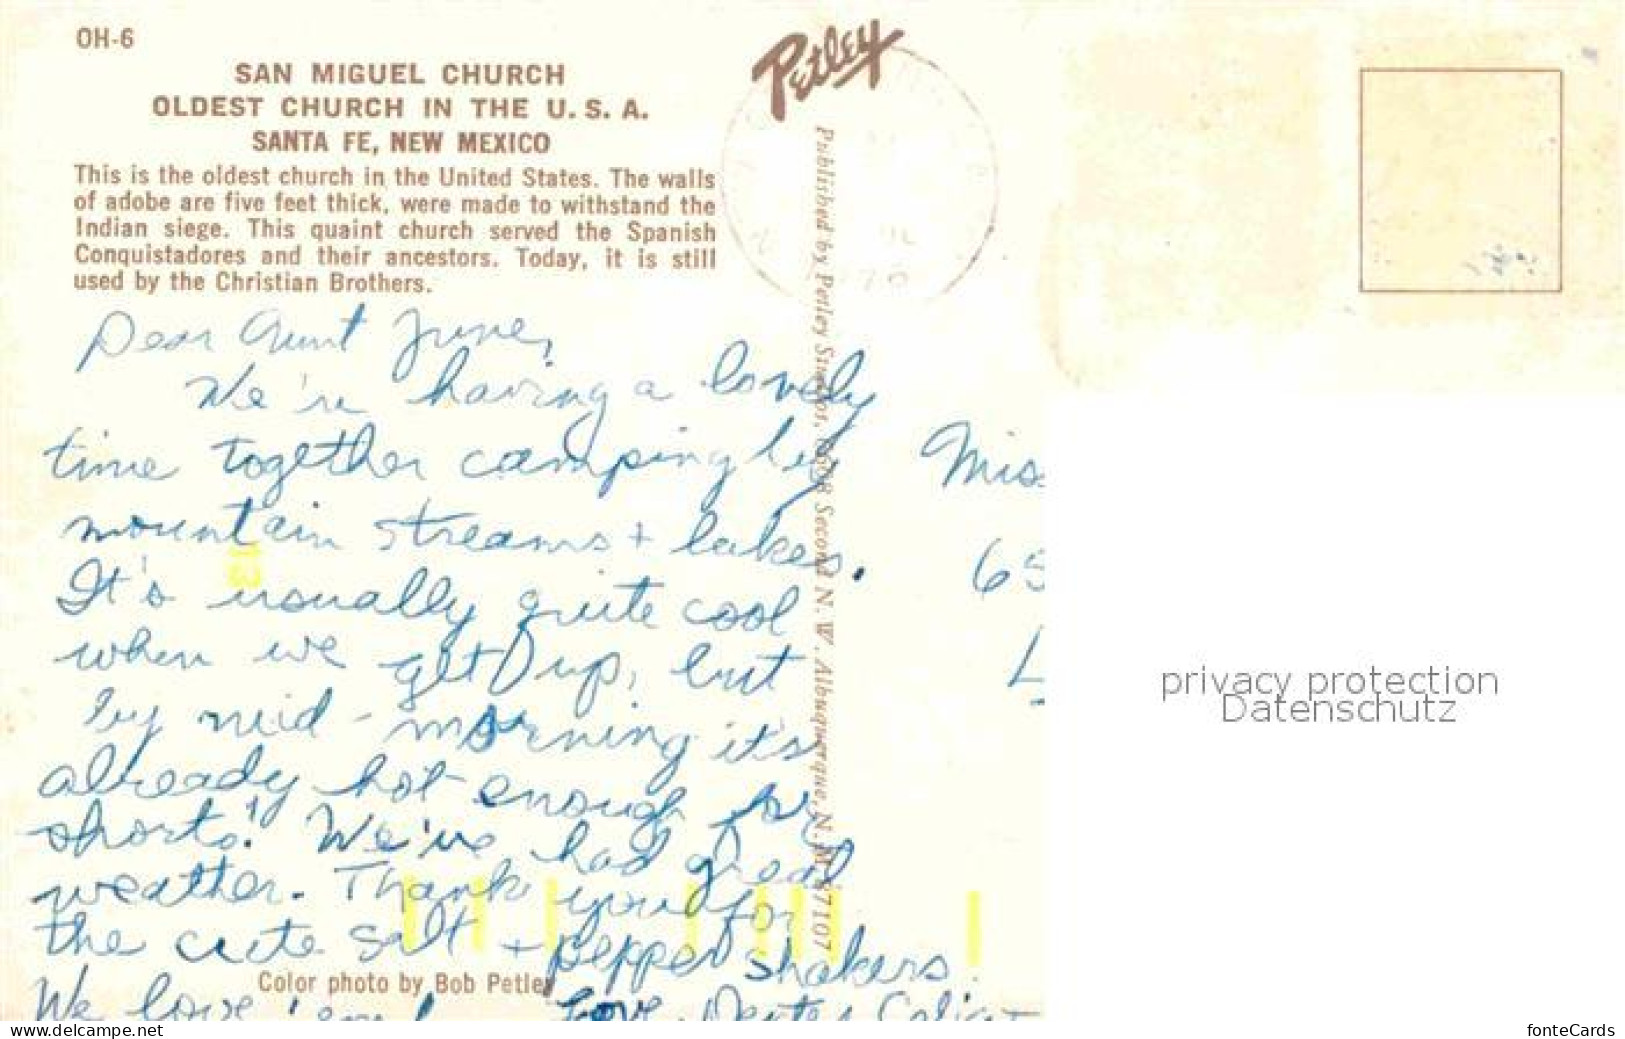 OH-6
SAN MIGUEL CHURCH
OLDEST CHURCH IN THE U. S. A.
SANTA FE, NEW MEXICO
This is the oldest church in the United States. The walls
of adobe are five feet thick, were made to withstand the
Indian siege. This quaint church served the Spanish
Conquistadores and their ancestors. Today, it is still
used by the Christian Brothers.
Petley
Published by Petley Studios, Second N. W. Albuquerque, N. M. 87107
Dear Aunt June,
We're having a lovely
time together camping by
mountain streams + lakes.
It's usually quite cool
when we get up, but
by mid-morning it's
already hot enough for
shorts! We've had great
weather. Thank you for
the cute salt + pepper shakers.
We love 'em! Love, Dexter
Color photo by Bob Petley
Miss
65
L
privacy protection
Datenschutz
www.delcampe.net
fonteCards